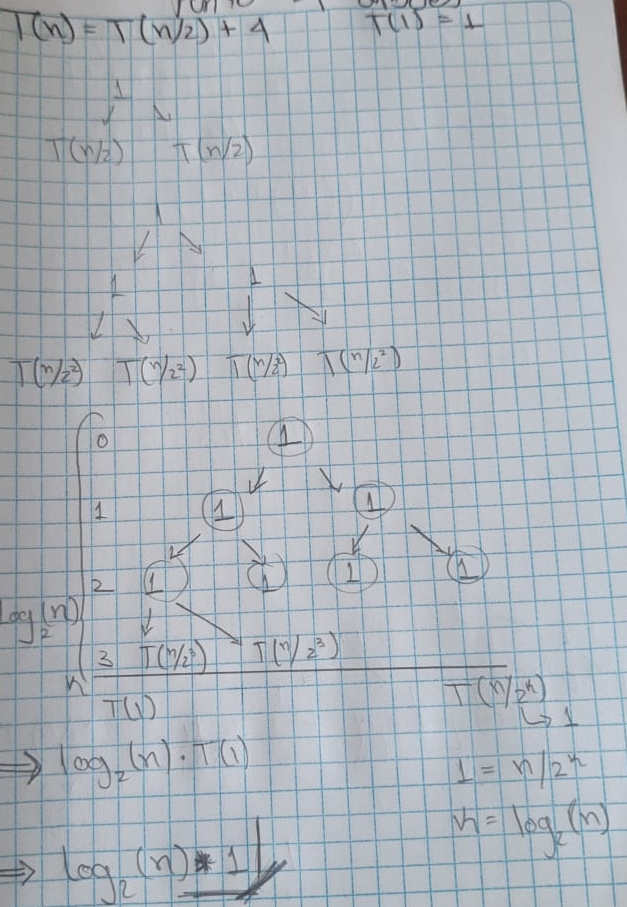 T(n) = T(n/2) + 4 T(1) = 1
1
T(n/2) T(n/2)
1
1 1
T(n/2²) T(n/2²) T(n/2²) T(n/2²)
0 1
1 1 1
2 1 1 1 1
log₂(n)
3 T(n/2³) T(n/2³)
n T(1) T(n/2ⁿ)
↳ 1
⇒ log₂(n) · T(1) 1 = n/2ⁿ
n = log₂(n)
⇒ log₂(n) * 1